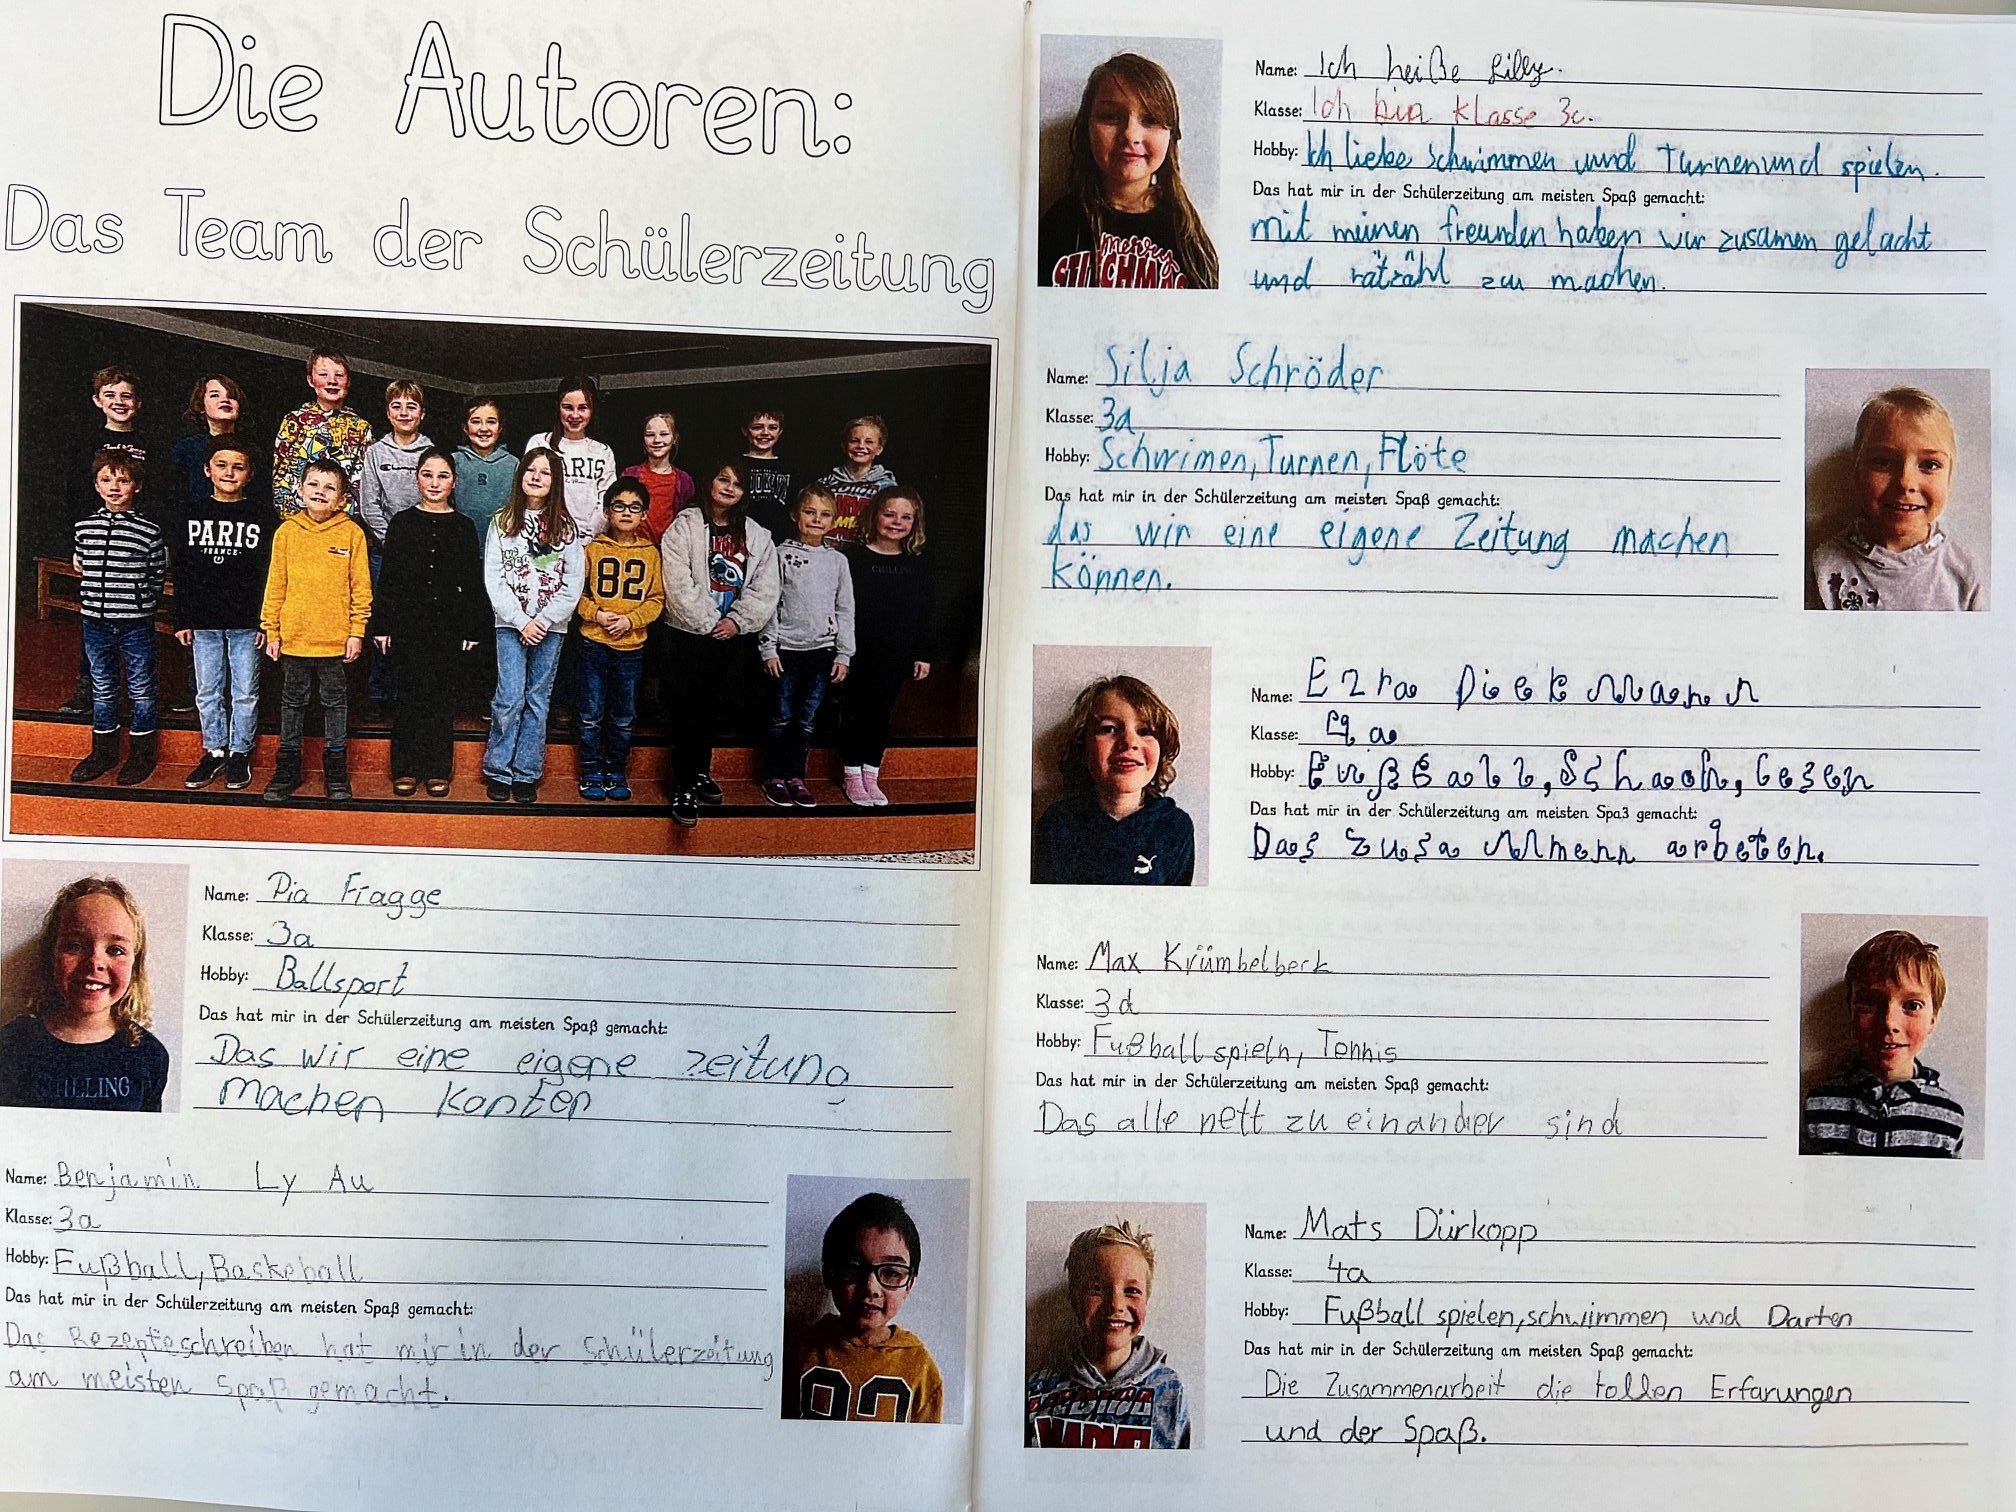 Die Autoren:
Das Team der Schülerzeitung
PARIS
FRANCE
ARIS
82
CHILLING
Name: Pia Fragge
Klasse: 3a
Hobby: Ballsport
Das hat mir in der Schülerzeitung am meisten Spaß gemacht:
Das wir eine eigene zeitung
machen konten
CHILLING
Name: Benjamin Ly Au
Klasse: 3a
Hobby: Fußball, Baskeball
Das hat mir in der Schülerzeitung am meisten Spaß gemacht:
Das Rezepteschreiben hat mir in der Schülerzeitung
am meisten Spaß gemacht.
82
Name: Ich heiße Lilly.
Klasse: Ich bin Klasse 3c.
Hobby: Ich liebe schwimmen und Turnen und spielen.
Das hat mir in der Schülerzeitung am meisten Spaß gemacht:
mit meinen freunden haben wir zusamen gelacht
und rätzähl zu machen.
merry
STITCHMAS
Name: Silja Schröder
Klasse: 3a
Hobby: Schwimen, Turnen, Flöte
Das hat mir in der Schülerzeitung am meisten Spaß gemacht:
das wir eine eigene Zeitung machen
können.
Name: Ezra Diekmann
Klasse: 4a
Hobby: Fußball, Schach, Lesen
Das hat mir in der Schülerzeitung am meisten Spa3 gemacht:
Das zusammenn arbeten.
Name: Max Krümbelberk
Klasse: 3d
Hobby: Fußball spieln, Tennis
Das hat mir in der Schülerzeitung am meisten Spaß gemacht:
Das alle nett zu einander sind
Name: Mats Dürkopp
Klasse: 4a
Hobby: Fußball spielen, schwimmen und Darten
Das hat mir in der Schülerzeitung am meisten Spaß gemacht:
Die Zusammenarbeit die tollen Erfarungen
und der Spaß.